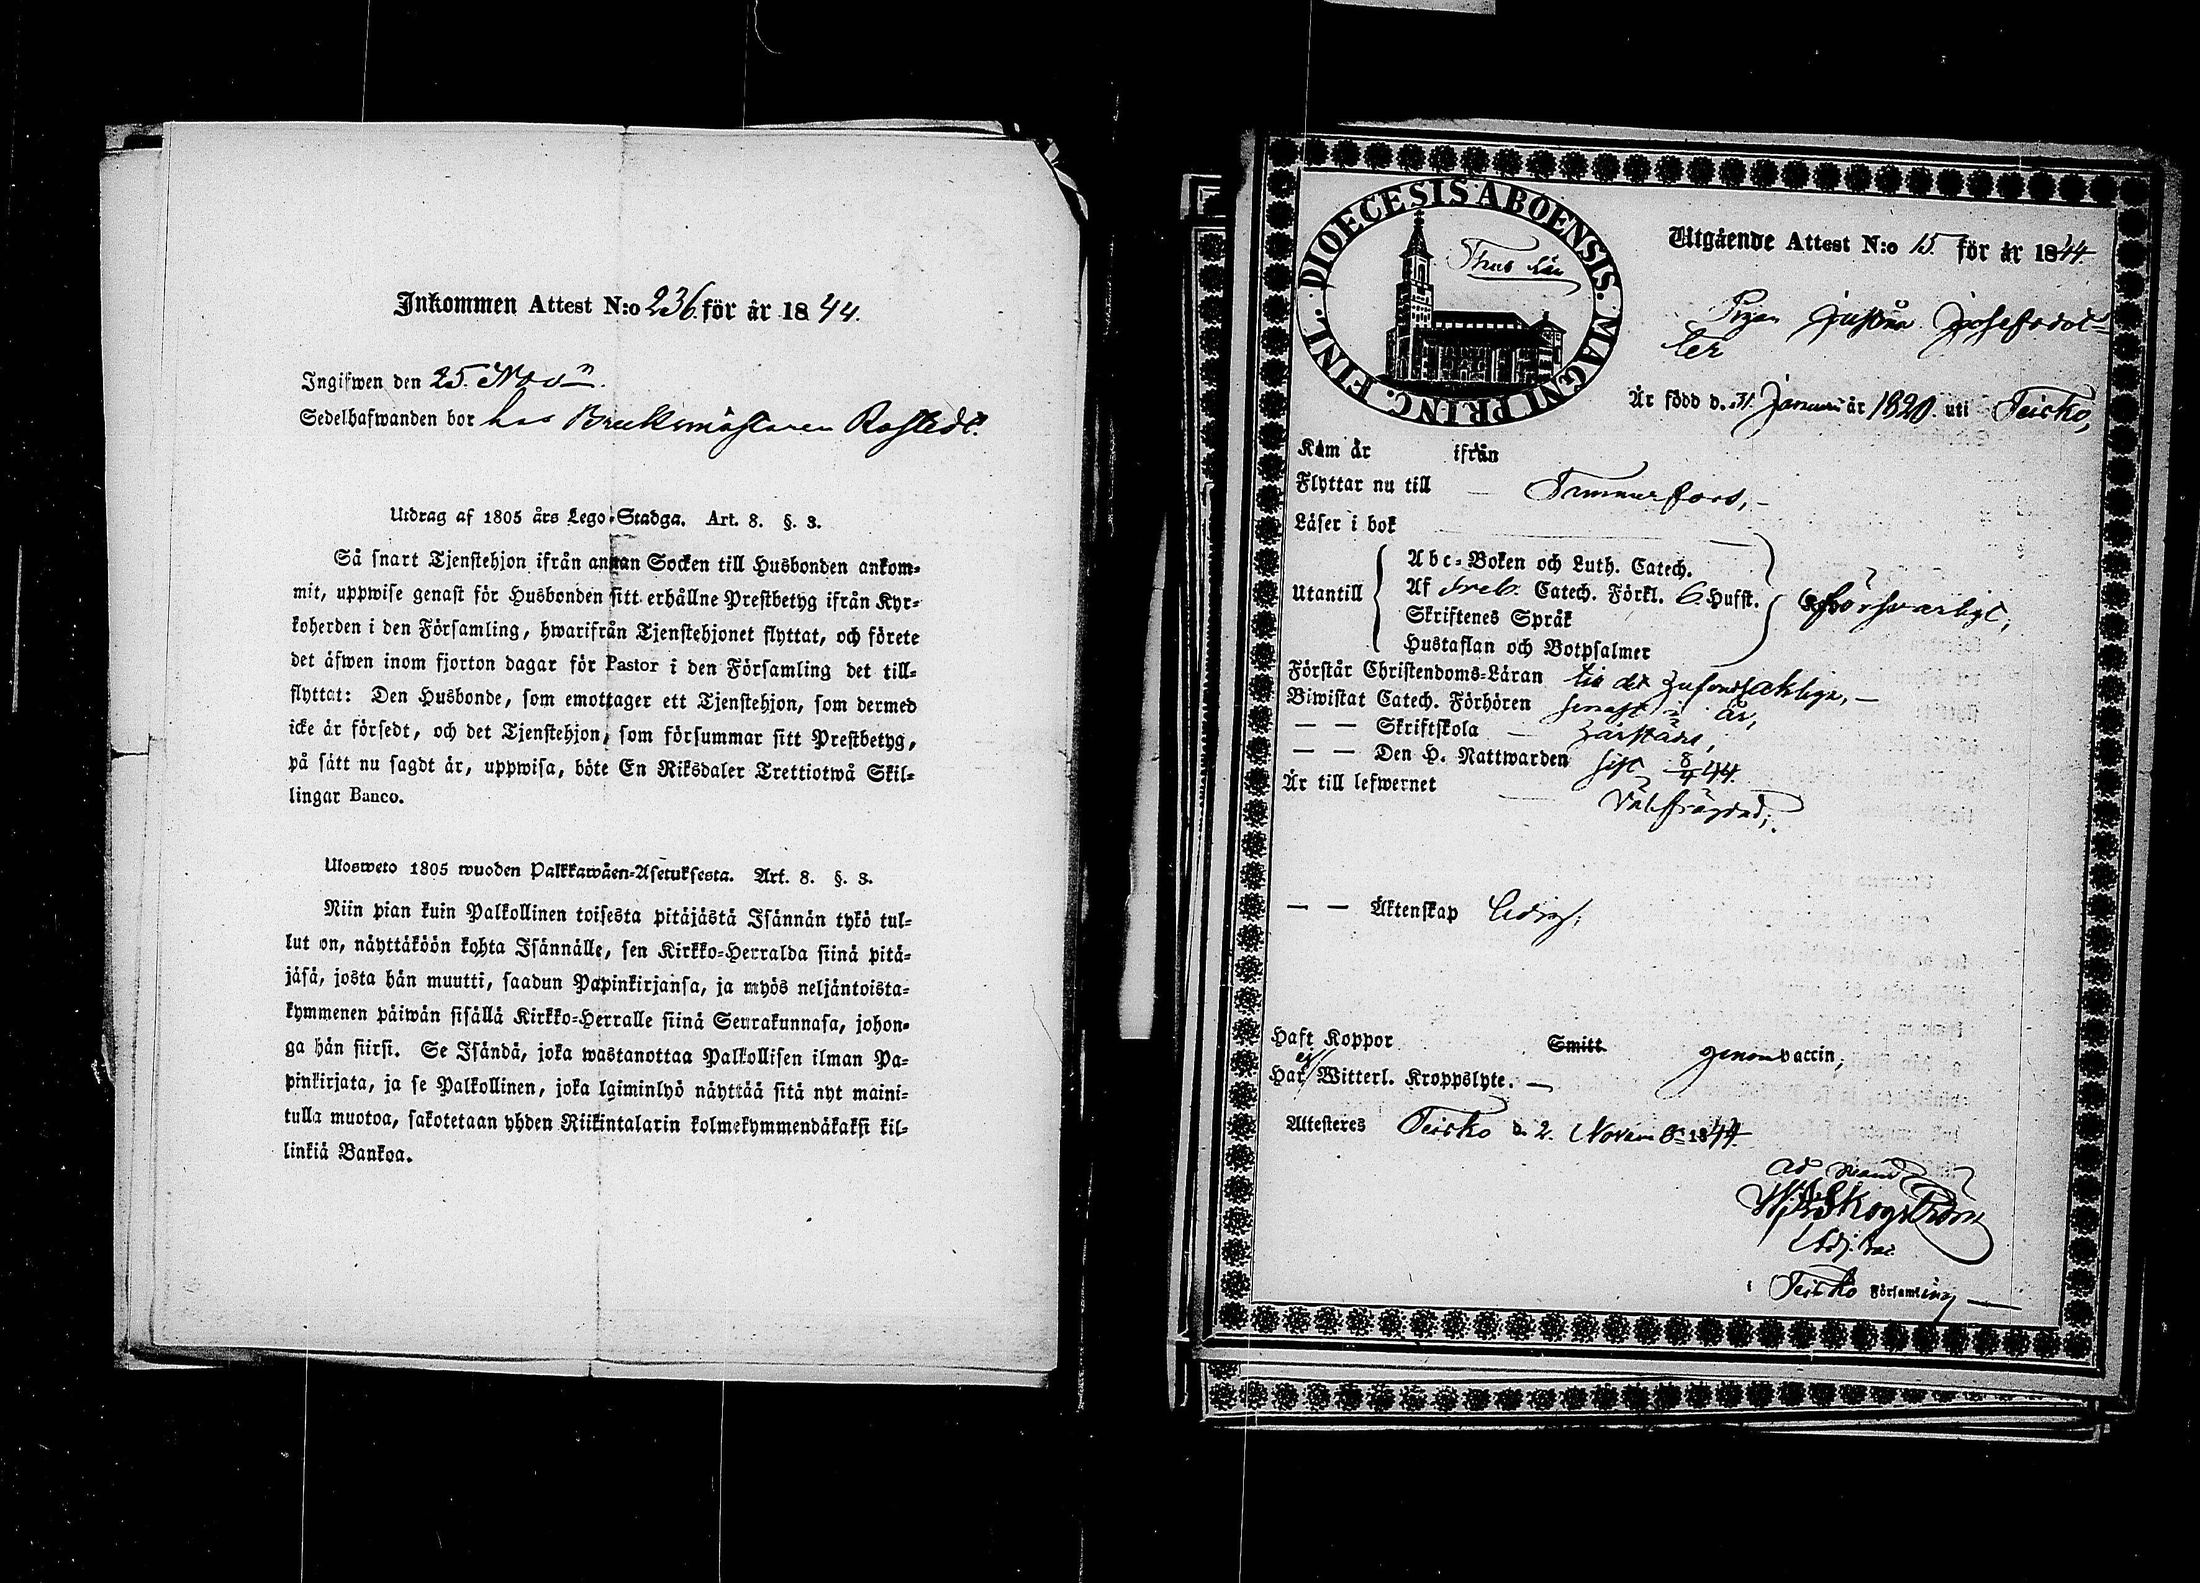 Inkommen Attest N:o 236 för år 1844.
Ingifwen den 25. Novr.
Sedelhafwanden bor hos Bruksmästaren Rostedt.
Utdrag af 1805 års Lego-Stadga. Art. 8. §. 3.
Så snart Tjenstehjon ifrån annan Socken till Husbonden ankom-
mit, uppwise genast för Husbonden sitt erhållne Prestbetyg ifrån Kyr-
koherden i den Församling, hwarifrån Tjenstehjonet flyttat, och förete
det äfwen inom fjorton dagar för Pastor i den Församling det till-
flyttat: Den Husbonde, som emottager ett Tjenstehjon, som dermed
icke är försedt, och det Tjenstehjon, som försummar sitt Prestbetyg,
på sätt nu sagdt är, uppwisa, böte En Riksdaler Trettiotwå Skil-
lingar Banco.
Ulosweto 1805 wuoden Palkkawäen-Asetuksesta. Art. 8. §. 3.
Niin pian kuin Palkollinen toisesta pitäjästä Isännän tykö tul-
lut on, näyttäköön kohta Isännälle, sen Kirkko-Herralda siinä pitä-
jäsä, josta hän muutti, saadun Papinkirjansa, ja myös neljäntoista-
kymmenen päiwän sisällä Kirkko-Herralle siinä Seurakunnasa, johon-
ga hän siirsi. Se Isändä, joka wastanottaa Palkollisen ilman Pa-
pinkirjata, ja se Palkollinen, joka laiminlyö näyttää sitä nyt maini-
tulla muotoa, sakotetaan yhden Riikintalarin kolmekymmendäkaksi kil-
linkiä Bankoa.
DIOECESIS ABOENSIS. MAGNI PRINC. FINL.
Thus Län
Utgående Attest N:o 15 för år 1844.
Pigan Justina Josefsdot-
ter
Är född d. 31 Januari år 1820 uti Teisko,
Kom år ifrån
Flyttar nu till Tammerfors,
Läser i bok
Utantill
Abc-Boken och Luth. Catech.
Af Sveb. Catech. Förkl. 6. Hufst.
Skriftenes Språk
Hustaflan och Botpsalmer
försvarligt,
Förstår Christendoms-Läran till det hufvudsakliga,
Biwistat Catech. Förhören senast i år,
— — Skriftskola
— — Den H. Nattwarden sist 8/9 44.
Är till lefwernet
Välfrägdad;
— — Äktenskap ledig;
Haft Koppor Smitt genom vaccin;
Har ej Witterl. Kroppslyte.
Attesteres Teisko d. 2. Novemb. 1844
ad mand
Skogström
Adj.
i Teisko Församling